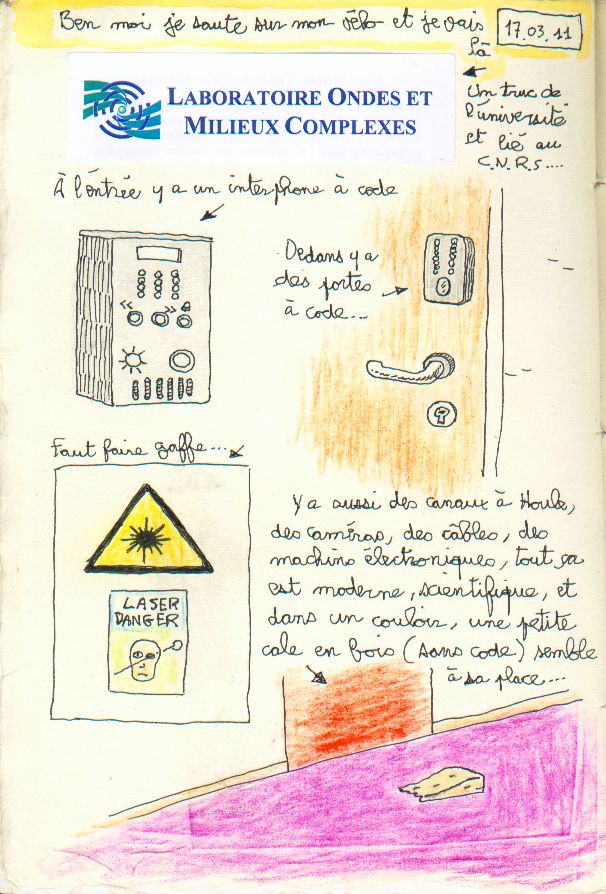 Ben moi je saute sur mon vélo et je vais
là
17.03.11
LABORATOIRE ONDES ET
MILIEUX COMPLEXES
Un truc de
l'université
et lié au
C.N.R.S....
À l'entrée y a un interphone à code
Dedans y a
des portes
à code...
Faut faire gaffe...
LASER
DANGER
Y a aussi des canaux à Houle,
des caméras, des câbles, des
machins électroniques, tout ça
est moderne, scientifique, et
dans un couloir, une petite
cale en bois (sans code) semble
à sa place...